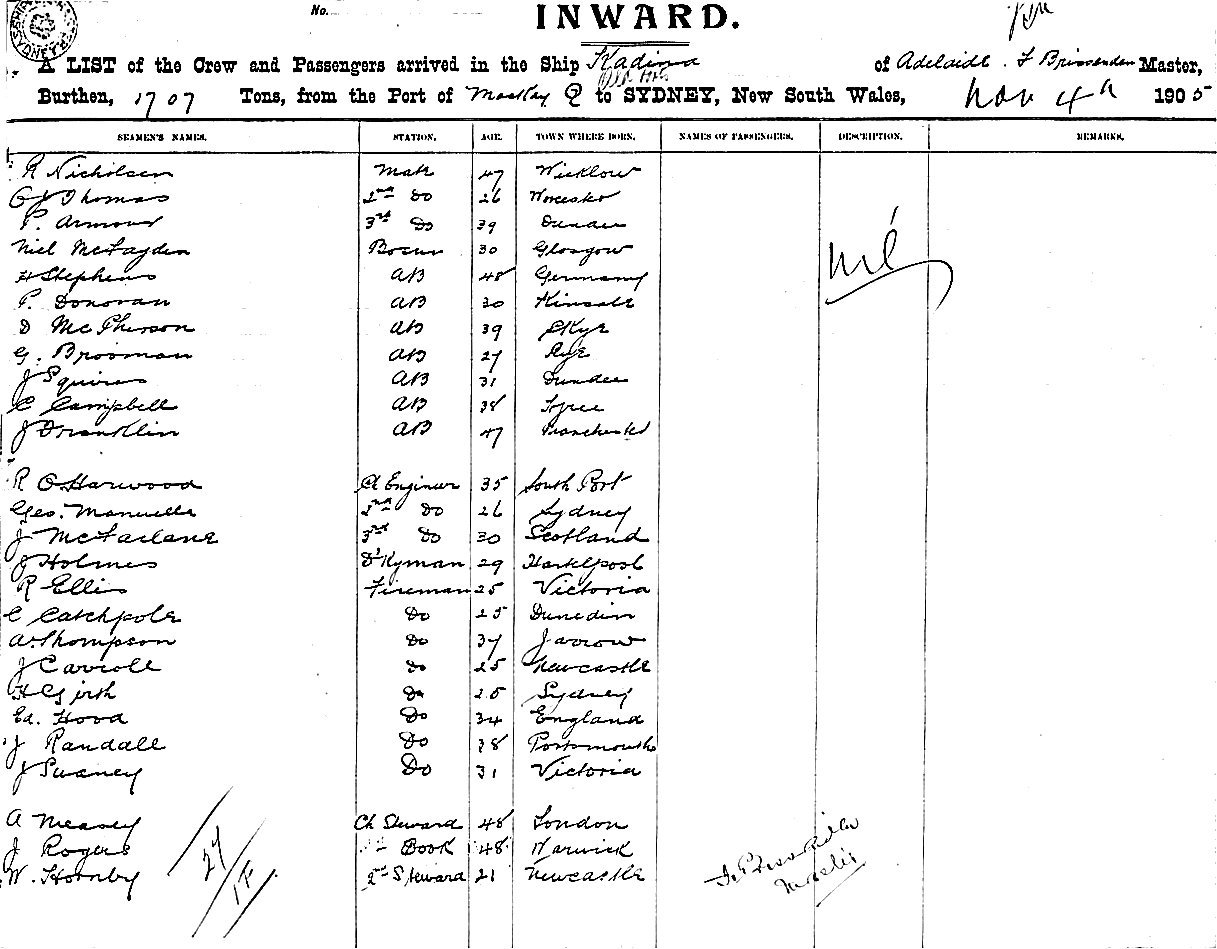 No.
INWARD.
A LIST of the Crew and Passengers arrived in the Ship Kadina of Adelaide. F Brissenden Master,
Burthen, 1707 Tons, from the Port of MacKay Q to SYDNEY, New South Wales, Nov 4th 1905
SEAMEN'S NAMES. STATION. AGE. TOWN WHERE BORN. NAMES OF PASSENGERS. DESCRIPTION. REMARKS.
R Nicholson Mate 47 Wicklow
Thomas 2nd Do 26 Worcester
P. Armour 3rd Do 39 Dundee
Niel McFayden Bosun 30 Glasgow
H Stephens AB 48 Germany
P. Donovan AB 30 Kinsale
D McPherson AB 39 Skye
G. Brooman AB 27 Rye
J Squires AB 31 Dundee
C Campbell AB 38 Tyree
J Franklin AB 47 Manchester
Nil
R O Harwood Ch Engineer 35 South Port
Geo. Manuelle 2nd Do 26 Sydney
J McFarlane 3rd Do 30 Scotland
J Holmes D'Kyman 29 Hartlepool
R Ellis Fireman 25 Victoria
C Catchpole Do 25 Dunedin
A. Thompson Do 37 Jarrow
J Carroll Do 25 Newcastle
H Girth Do 25 Sydney
Ed. Hood Do 34 England
J Randall Do 38 Portsmouth
J Swaney Do 31 Victoria
A Measey Ch Steward 48 London
J Rogers Cook 48 Warwick
W. Hornby 2nd Steward 21 Newcastle
27